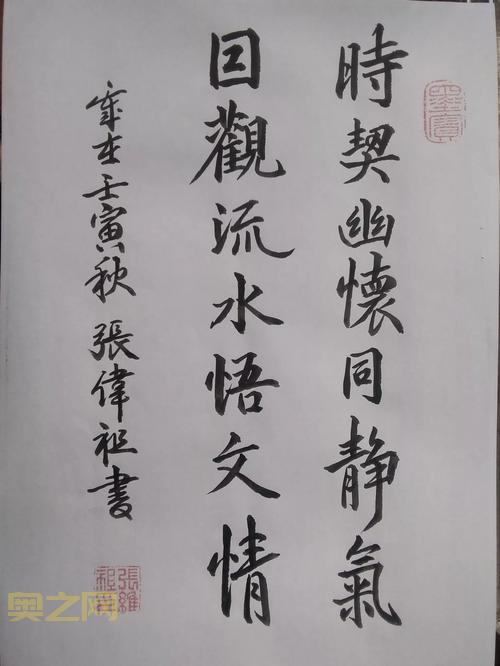 時契幽懷同静氣
因觀流水悟文情
歲在壬寅秋 張偉祖書
墨寶
張維祖印
奥之网